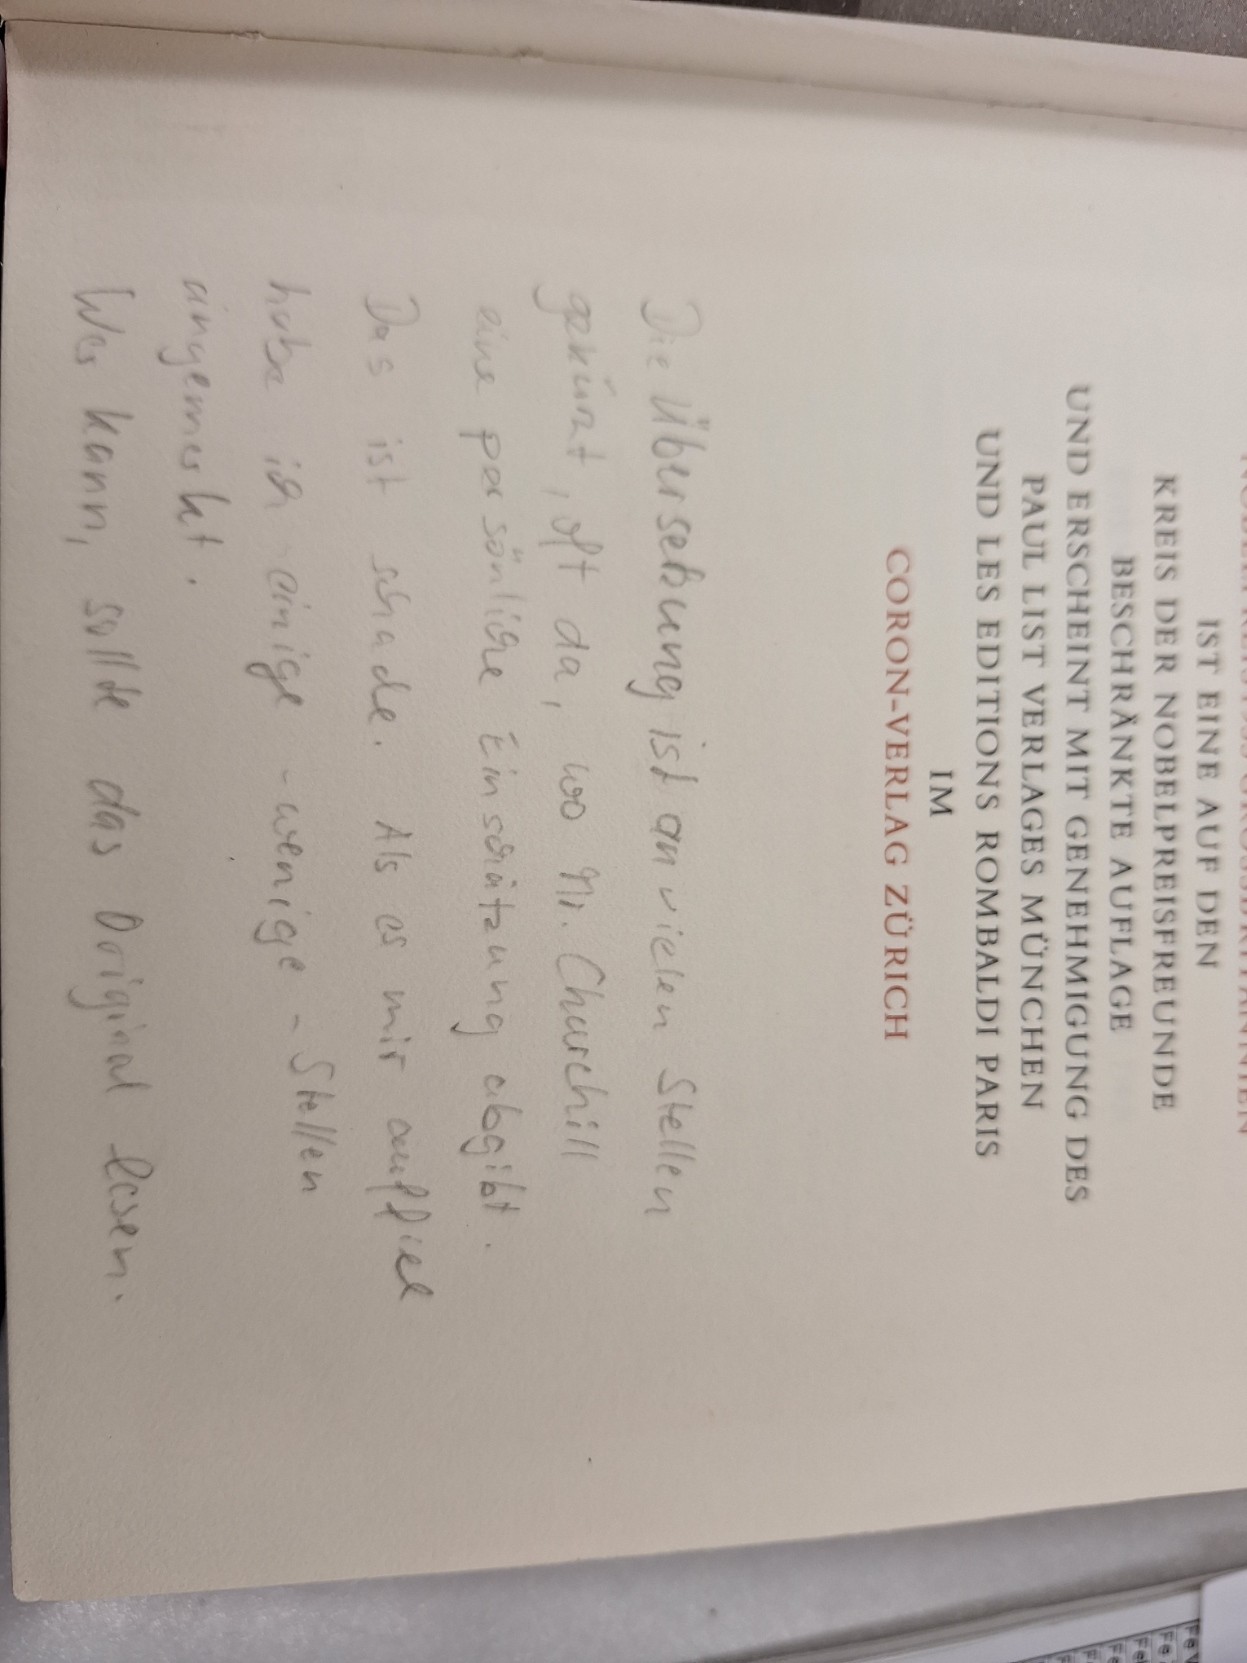 IST EINE AUF DEN
KREIS DER NOBELPREISFREUNDE
BESCHRÄNKTE AUFLAGE
UND ERSCHEINT MIT GENEHMIGUNG DES
PAUL LIST VERLAGES MÜNCHEN
UND LES EDITIONS ROMBALDI PARIS
IM
CORON-VERLAG ZÜRICH
Die Übersetzung ist an vielen Stellen
gekürzt, oft da, wo Mr. Churchill
eine persönliche Einschätzung abgibt.
Das ist schade. Als es mir auffiel
habe ich einige - wenige - Stellen
angemerkt.
Wer kann, sollte das Original lesen.